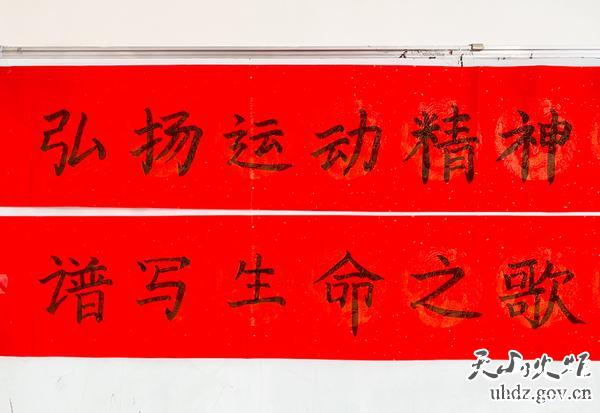 弘扬运动精神
谱写生命之歌
天山火炬
uhdz.gov.cn